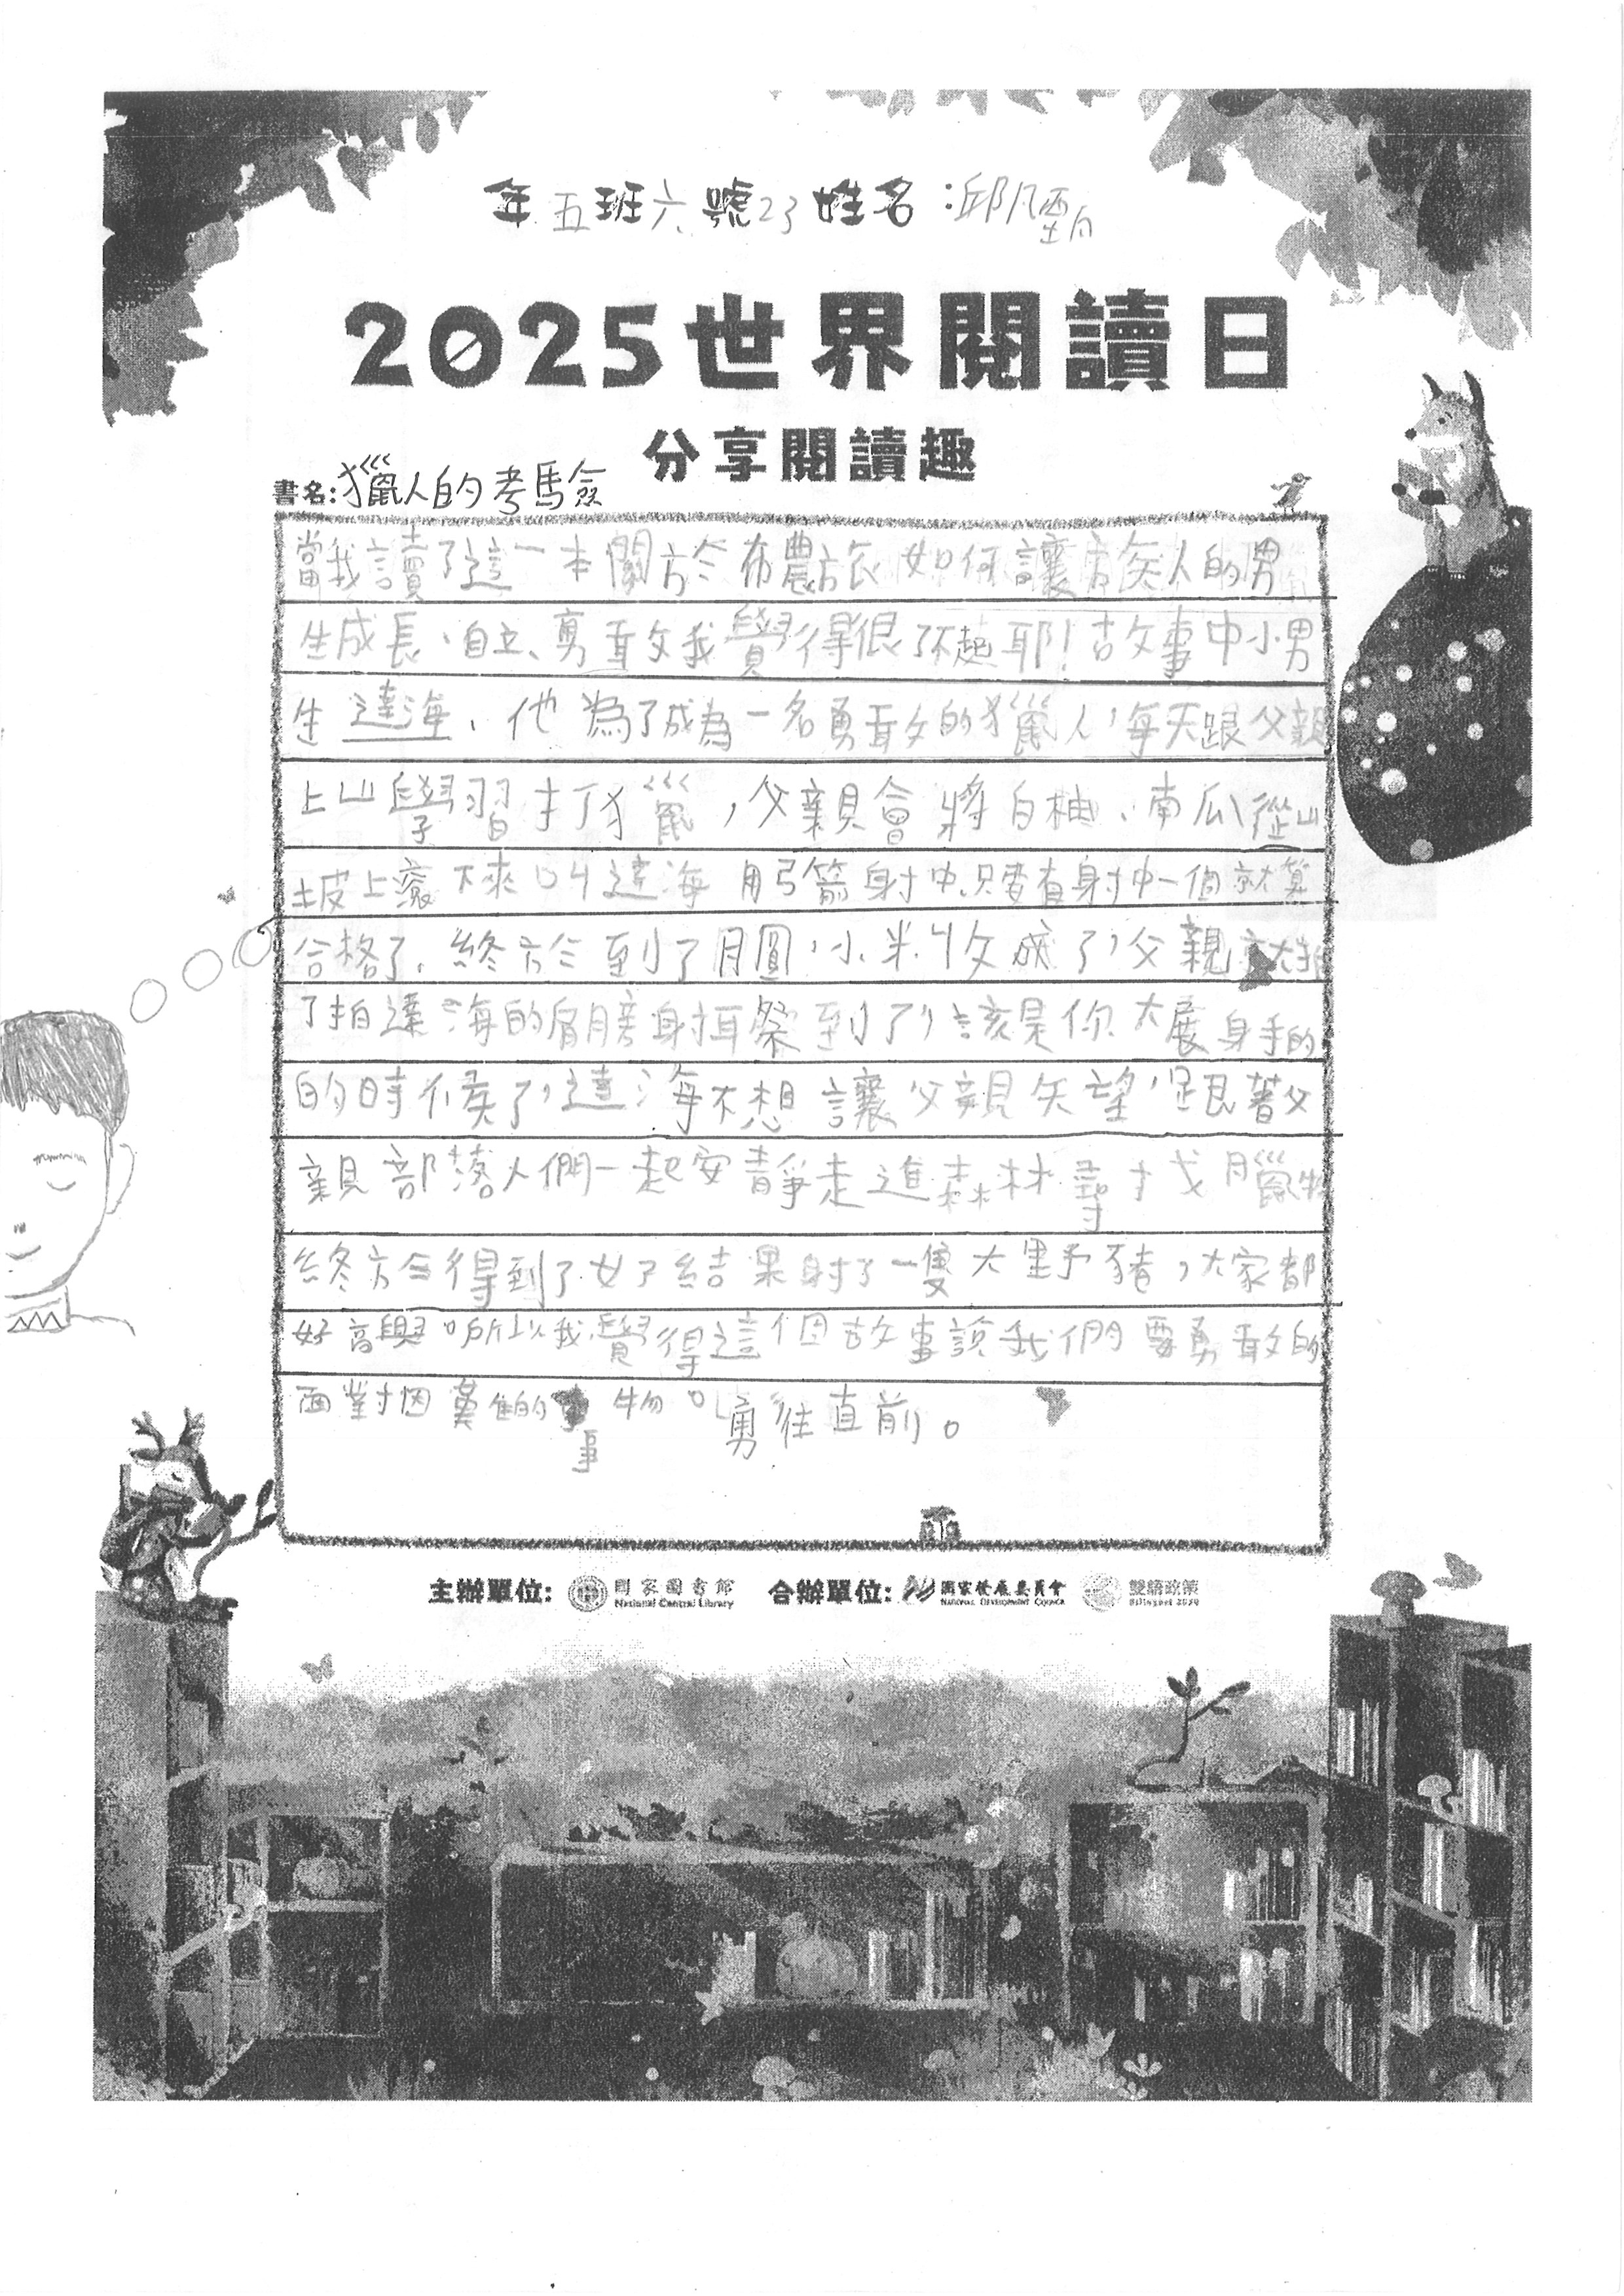 年五班六號23姓名：邱凡甄
2025世界閱讀日
分享閱讀趣
書名:獵人的考驗
當我讀了這一本關於布農族如何讓族人的男
生成長、自立、勇敢我覺得很了不起耶!故事中小男
生達海、他為了成為一名勇敢的獵人，每天跟父親
上山學習打獵，父親會將白柚、南瓜從山
坡上滾下來叫達海用弓箭射中只要有射中一個就算
合格了、終於到了月圓，小米收成了，父親就拍
了拍達海的肩膀射耳祭到了，該是你大展身手的
的時候了，達海不想讓父親失望，跟著父
親部落人們一起安靜走進森林尋找臘物
終於得到了好結果射了一隻大野豬，大家都
好高興，所以我覺得這個故事說我們要勇敢的
面對困難的事物，勇往直前。
事
主辦單位: 國家圖書館 合辦單位: 國家發展委員會 雙語政策
National Central Library NATIONAL DEVELOPMENT COUNCIL Bilingual 2030